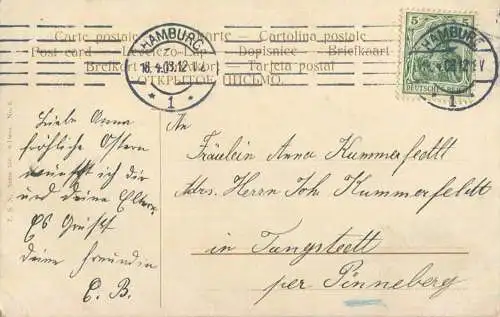 Carte postale Cartolina postale
Post card Levelező-Lap Dopisnice Briefkaart
Brefkort Tarjeta postal
ОТКРЫТОЕ ПИСЬМО.
HAMBURG
1
5 5
HAMBURG
1
DEUTSCHES REICH
Liebe Anna
fröhliche Ostern
wünscht ich dir
und deine Eltern
Es Grüßt
deine Freundin
C. B.
An
Fräulein Anna Kummerfeldt
Adrs. Herrn Joh Kummerfeldt
in Tangstedt
per Pinneberg